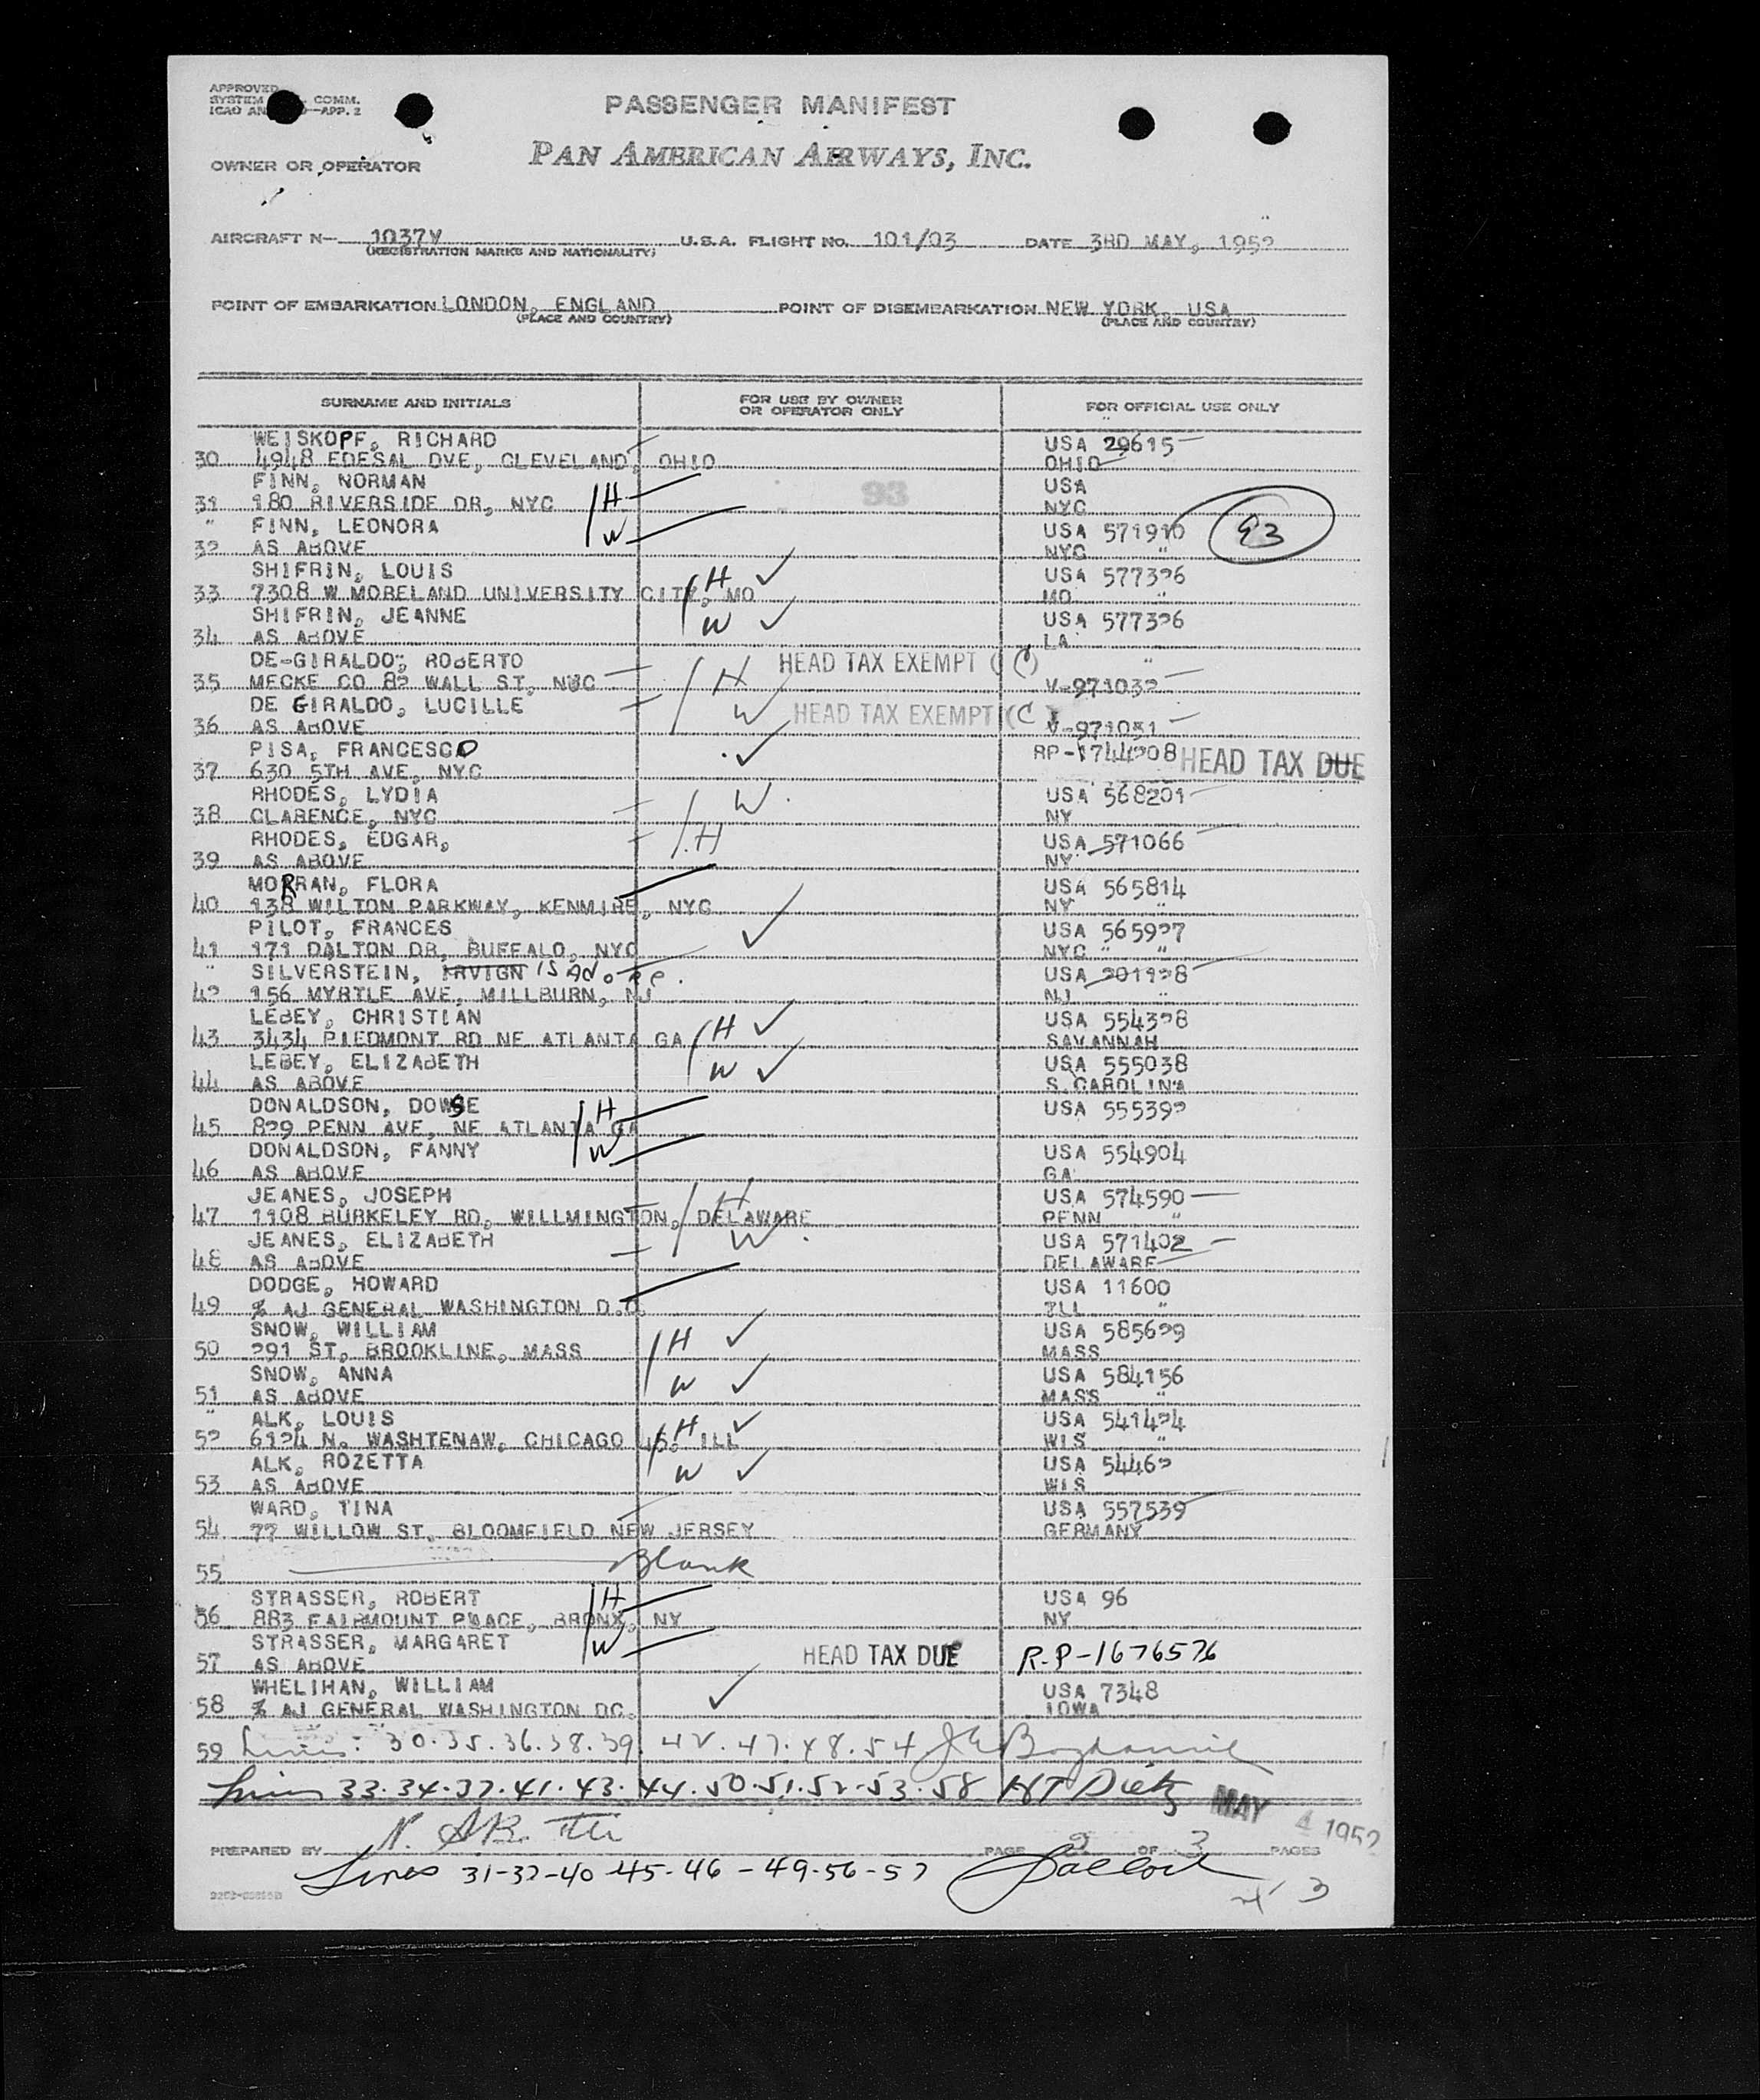 APPROVED
SYSTEM COMM.
ICAO AN —APP. 2
PASSENGER MANIFEST
PAN AMERICAN AIRWAYS, INC.
OWNER OR OPERATOR
AIRCRAFT N— 1037V U.S.A. FLIGHT NO. 101/03 DATE 3RD MAY, 1952
(REGISTRATION MARKS AND NATIONALITY)
POINT OF EMBARKATION LONDON, ENGLAND POINT OF DISEMBARKATION NEW YORK, USA
(PLACE AND COUNTRY) (PLACE AND COUNTRY)
SURNAME AND INITIALS FOR USE BY OWNER OR OPERATOR ONLY FOR OFFICIAL USE ONLY
WEISKOPF, RICHARD USA 29615
30 4948 EDESAL DVE, CLEVELAND, OHIO OHIO
FINN, NORMAN USA
31 180 RIVERSIDE DR, NYC H 93 NYC
" FINN, LEONORA W USA 571910 93
32 AS ABOVE NYC "
SHIFRIN, LOUIS H ✓ USA 577326
33 7308 W MORELAND UNIVERSITY CITY, MO MO "
SHIFRIN, JEANNE W ✓ USA 577326
34 AS ABOVE LA
DE-GIRALDO, ROBERTO HEAD TAX EXEMPT (C) "
35 MECKE CO 82 WALL ST, NYC H V-971032
DE GIRALDO, LUCILLE W HEAD TAX EXEMPT (C)
36 AS ABOVE V-971051
PISA, FRANCESCO ✓ RP-1744208 HEAD TAX DUE
37 630 5TH AVE, NYC
RHODES, LYDIA W USA 568201
38 CLARENCE, NYC NY
RHODES, EDGAR, H USA 571066
39 AS ABOVE NY
MORRAN, FLORA USA 565814
40 138 WILTON PARKWAY, KENMIRE, NYC NY "
PILOT, FRANCES ✓ USA 565927
41 171 DALTON DR, BUFFALO, NYC NYC " "
" SILVERSTEIN, IRVIGN ISADORE USA 201128
42 156 MYRTLE AVE, MILLBURN, NJ NJ "
LEBEY, CHRISTIAN H ✓ USA 554328
43 3434 PIEDMONT RD NE ATLANTA GA SAVANNAH
LEBEY, ELIZABETH W ✓ USA 555038
44 AS ABOVE S.CAROLINA
DONALDSON, DOWSE H USA 555392
45 829 PENN AVE, NE ATLANTA GA
DONALDSON, FANNY W USA 554904
46 AS ABOVE GA
JEANES, JOSEPH H USA 574590
47 1108 BURKELEY RD, WILLMINGTON, DELAWARE PENN "
JEANES, ELIZABETH W USA 571402
48 AS ABOVE DELAWARE
DODGE, HOWARD USA 11600
49 % AJ GENERAL WASHINGTON D.C. ILL "
SNOW, WILLIAM H ✓ USA 585629
50 291 ST, BROOKLINE, MASS MASS
SNOW, ANNA W ✓ USA 584156
51 AS ABOVE MASS "
" ALK, LOUIS H ✓ USA 541424
52 6124 N. WASHTENAW, CHICAGO 45, ILL WIS "
ALK, ROZETTA W ✓ USA 54462
53 AS ABOVE WIS
WARD, TINA USA 557539
54 77 WILLOW ST, BLOOMFIELD NEW JERSEY GERMANY
55 Blank
STRASSER, ROBERT H USA 96
56 883 FAIRMOUNT PLACE, BRONX, NY NY
STRASSER, MARGARET W HEAD TAX DUE R.P-1676576
57 AS ABOVE
WHELIHAN, WILLIAM ✓ USA 7348
58 % AJ GENERAL WASHINGTON DC. IOWA
59 Lines: 30.35.36.38.39 42.47.48.54
Lines 33.34.37.41.43.44.50.51.52.53.58 HT Dietz MAY 4 1952
PREPARED BY PAGE 2 OF 3 PAGES
Lines 31-32-40-45-46-49-56-57
3